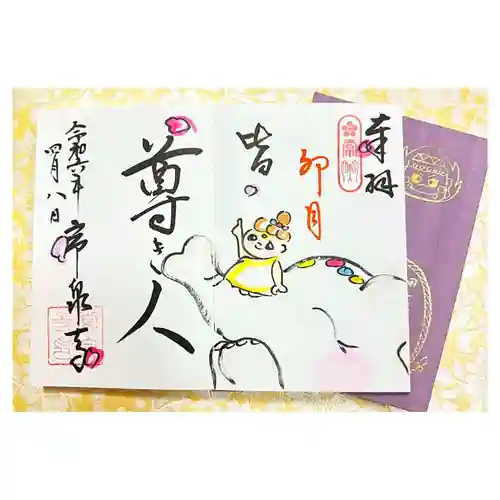 奉拝
卯月
皆。
尊き人
令和六年
四月八日
帝泉寺